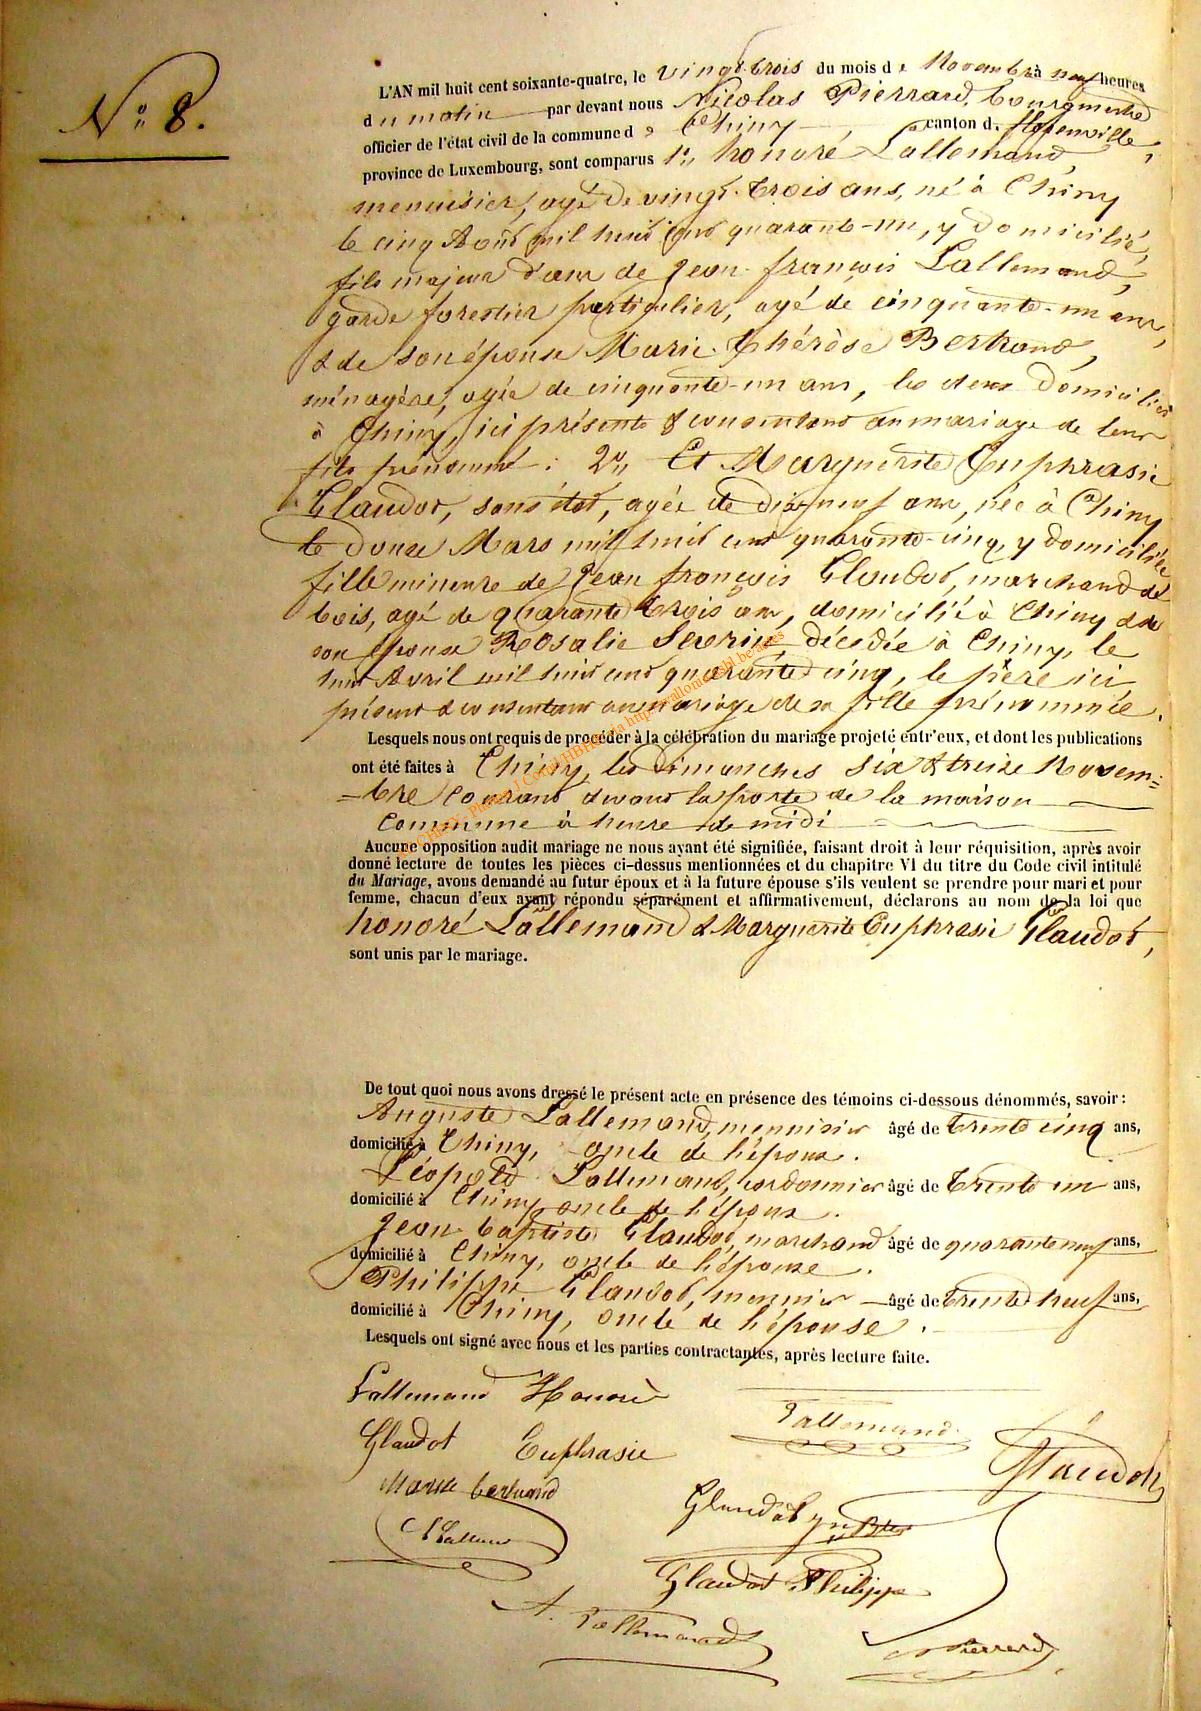 N° 8.
L'AN mil huit cent soixante-quatre, le vingt trois du mois de Novembre à neuf heures
du matin par devant nous Nicolas Pierrard, bourgmestre
officier de l'état civil de la commune de Chiny, canton d. florenville,
province de Luxembourg, sont comparus 1° honoré Lallemand,
menuisier, agé de vingt-trois ans, né à Chiny
le cinq Août mil huit cent quarante-un, y domicilié,
fils majeur d'ans de Jean françois Lallemand,
garde forestier particulier, agé de cinquante-un ans,
& de son épouse Marie Thérèse Bertrand,
ménagère, agée de cinquante-un ans, les deux domiciliés
à Chiny, ici présents & consentans au mariage de leur
fils prénommé : 2° Et Marguerite Euphrasie
Glaudot, sans état, agée de dix-neuf ans, née à Chiny
le douze Mars mil huit cent quarante-cinq, y domiciliée
fille mineure de Jean françois Glaudot, marchand de
bois, agé de quarante trois ans, domicilié à Chiny & de
son épouse Rosalie Severin, décédée à Chiny, le
huit Avril mil huit cent quarante cinq, le père ici
présent & consentant au mariage de sa fille prénommée.
Lesquels nous ont requis de procéder à la célébration du mariage projeté entr'eux, et dont les publications
ont été faites à Chiny, les dimanches six & treize Novem=
=bre courant devant la porte de la maison
commune à heure de midi
Aucune opposition audit mariage ne nous ayant été signifiée, faisant droit à leur réquisition, après avoir
donné lecture de toutes les pièces ci-dessus mentionnées et du chapitre VI du titre du Code civil intitulé
du Mariage, avons demandé au futur époux et à la future épouse s'ils veulent se prendre pour mari et pour
femme, chacun d'eux ayant répondu séparément et affirmativement, déclarons au nom de la loi que
honoré Lallemand & Marguerite Euphrasie Glaudot,
sont unis par le mariage.
De tout quoi nous avons dressé le présent acte en présence des témoins ci-dessous dénommés, savoir :
Auguste Lallemand, menuisier âgé de trente cinq ans,
domicilié à Chiny, oncle de l'époux.
Léopold Lallemand, cordonnier âgé de trente un ans,
domicilié à Chiny, oncle de l'époux.
Jean-baptiste Glaudot, marchand âgé de quarante neuf ans,
domicilié à Chiny, oncle de l'épouse.
Philippe Glaudot, meunier âgé de trente neuf ans,
domicilié à Chiny, oncle de l'épouse.
Lesquels ont signé avec nous et les parties contractantes, après lecture faite.
Lallemand Honoré
Lallemand
Glaudot Euphrasie
Glaudot
Marie bertrand
Glaudot
Glaudot Philippe
A. Lallemand
Pierrard